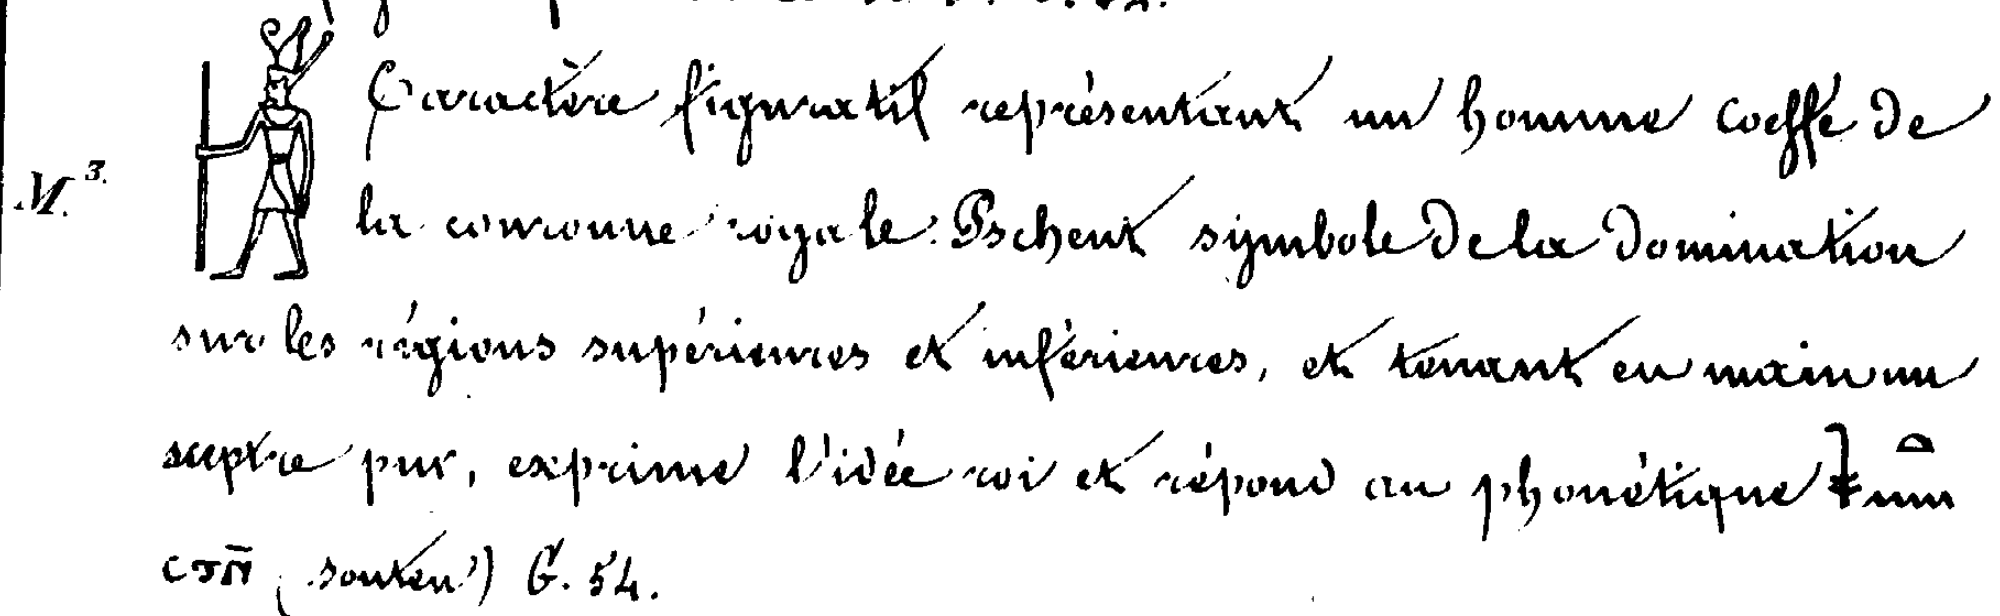 Caractère figuratif représentant un homme coeffé de
M.3. la couronne royale Pschent symbole de la domination
sur les régions supérieures et inférieures, et tenant en main un
sceptre pur, exprime l'idée roi et répond au phonétique 𓇓𓏏𓈖
ⲥⲧⲛ̄ (souten) G. 54.